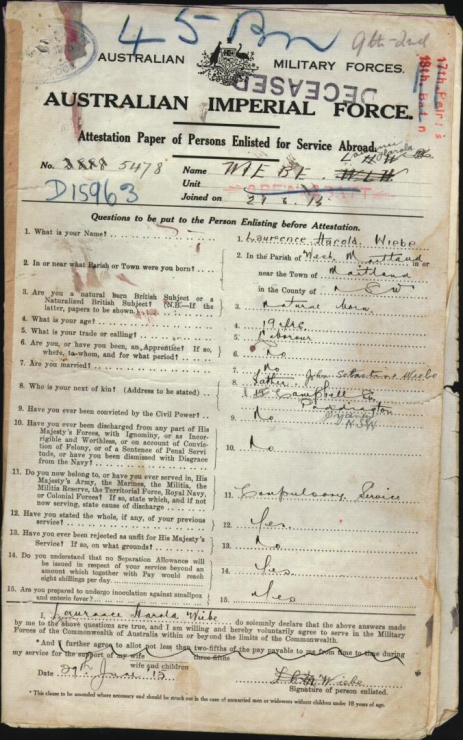 45 Bn
9th - 2nd
17th Rein's
18th Bat'n
AUSTRALIAN MILITARY FORCES.
DECEASED
AUSTRALIAN IMPERIAL FORCE.
Attestation Paper of Persons Enlisted for Service Abroad.
No. 5478 Name WIEBE Laurence Harold
D15963 Unit
Joined on
Questions to be put to the Person Enlisting before Attestation.
1. What is your Name? .. 1. Laurence Harold Wiebe
2. In or near what Parish or Town were you born? .. 2. In the Parish of West Maitland in or
near the Town of Maitland
in the County of N S W
3. Are you a natural born British Subject or a
Naturalized British Subject? (N.B.—If the
latter, papers to be shown.) 3. Natural born
4. What is your age? .. 4. 19
5. What is your trade or calling? .. 5. Labourer
6. Are you, or have you been, an Apprentice? If so,
where, to whom, and for what period? .. 6. No
7. Are you married? .. 7. No
8. Who is your next of kin? (Address to be stated) .. 8. Father John Sebastine Wiebe
Campbell
Paddington
Sydney
NSW
9. Have you ever been convicted by the Civil Power? .. 9. No
10. Have you ever been discharged from any part of His
Majesty's Forces, with Ignominy, or as Incor-
rigible and Worthless, or on account of Convic-
tion of Felony, or of a Sentence of Penal Servi-
tude, or have you been Dismissed with Disgrace
from the Navy? .. 10. No
11. Do you now belong to, or have you ever served in, His
Majesty's Army, the Marines, the Militia, the
Militia Reserve, the Territorial Force, Royal Navy,
or Colonial Forces? If so, state which, and if not
now serving, state cause of discharge .. 11. Compulsory Service
12. Have you stated the whole, if any, of your previous
service? .. 12. Yes
13. Have you ever been rejected as unfit for His Majesty's
Service? If so, on what grounds? .. 13. No
14. Do you understand that no Separation Allowance will
be issued in respect of your service beyond an
amount which together with Pay would reach
eight shillings per day. 14. Yes
15. Are you prepared to undergo inoculation against smallpox
and enteric fever? .. 15. Yes
I, Laurance Harold Wiebe do solemnly declare that the above answers made
by me to the above questions are true, and I am willing and hereby voluntarily agree to serve in the Military
Forces of the Commonwealth of Australia within or beyond the limits of the Commonwealth.
*And I further agree to allot not less than two-fifths of the pay payable to me from time to time during
three-fifths
my service for the support of my wife
wife and children
Date 29th June 15 Wiebe
Signature of person enlisted.
* This clause to be amended where necessary and should be struck out in the case of unmarried men or widowers without children under 18 years of age.